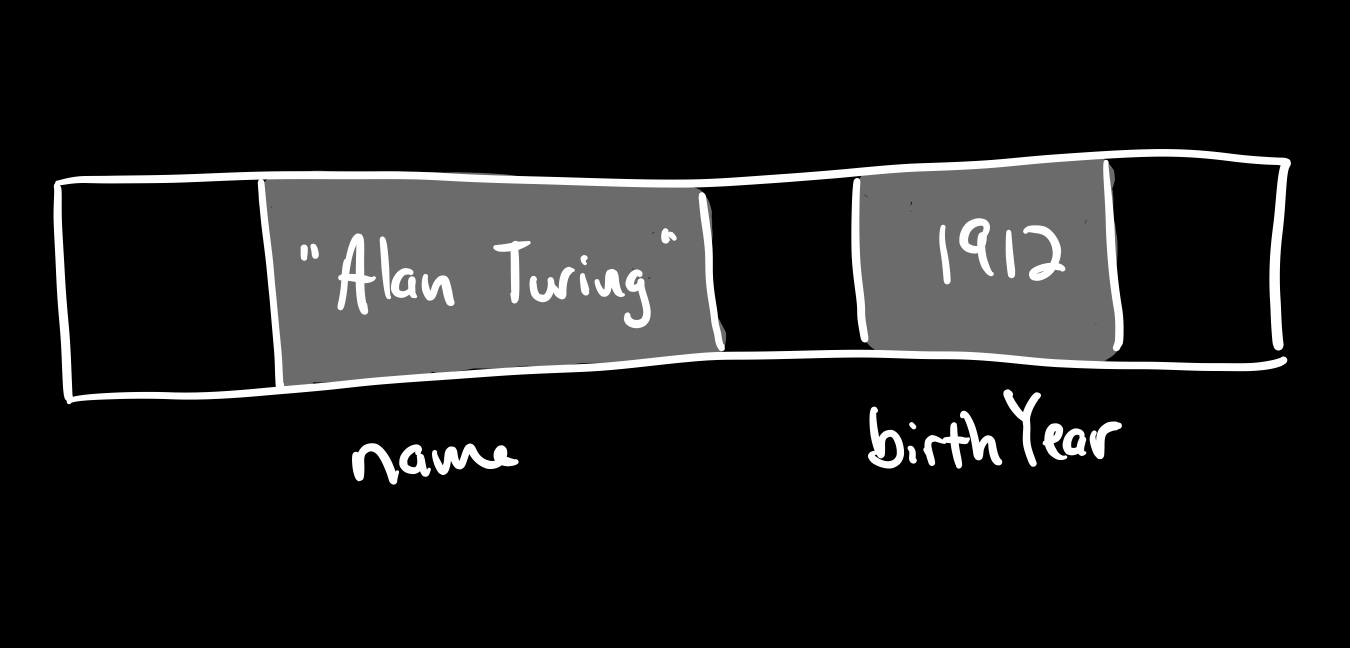 "Alan Turing"
1912
name
birthYear